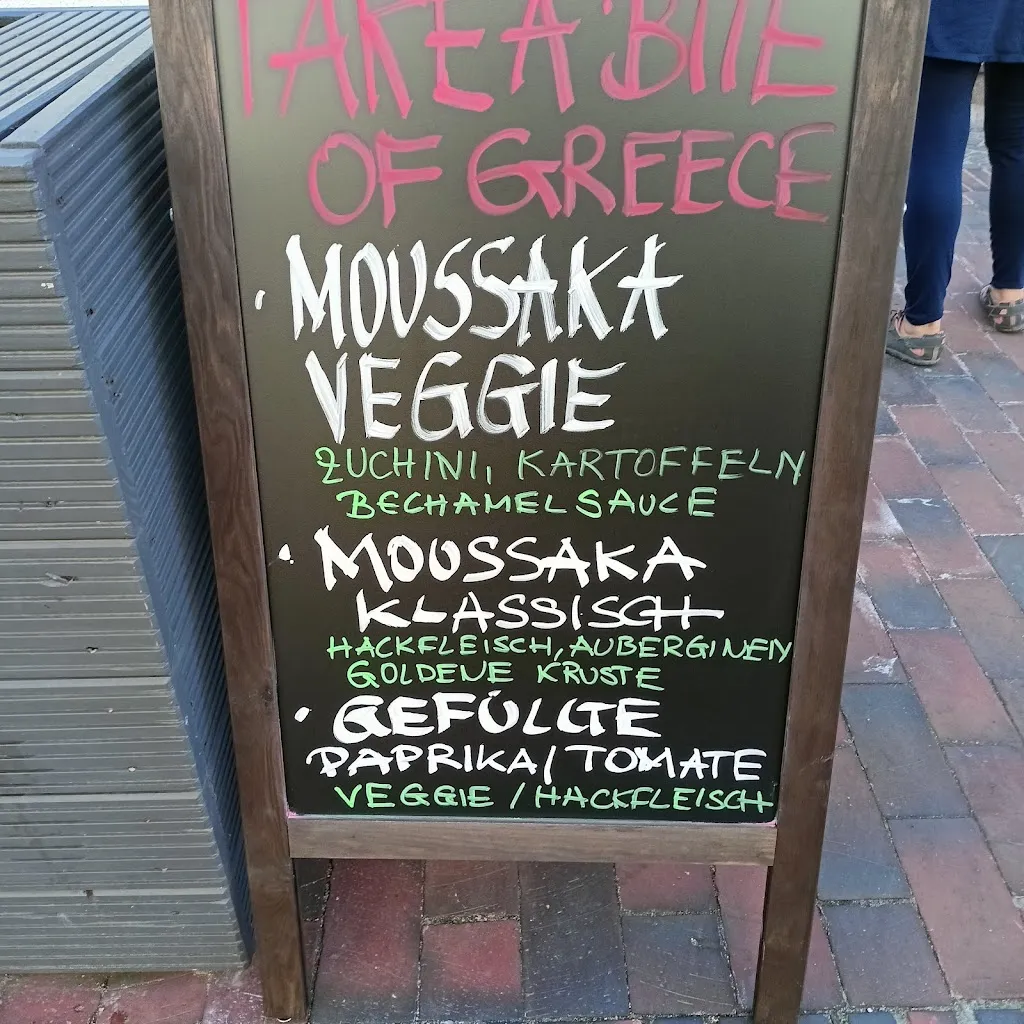 TAKE A BITE
OF GREECE
· MOUSSAKA
VEGGIE
ZUCHINI, KARTOFFELN
BECHAMEL SAUCE
· MOUSSAKA
KLASSISCH
HACKFLEISCH, AUBERGINEN
GOLDENE KRUSTE
· GEFÜLGTE
PAPRIKA/TOMATE
VEGGIE / HACKFLEISCH